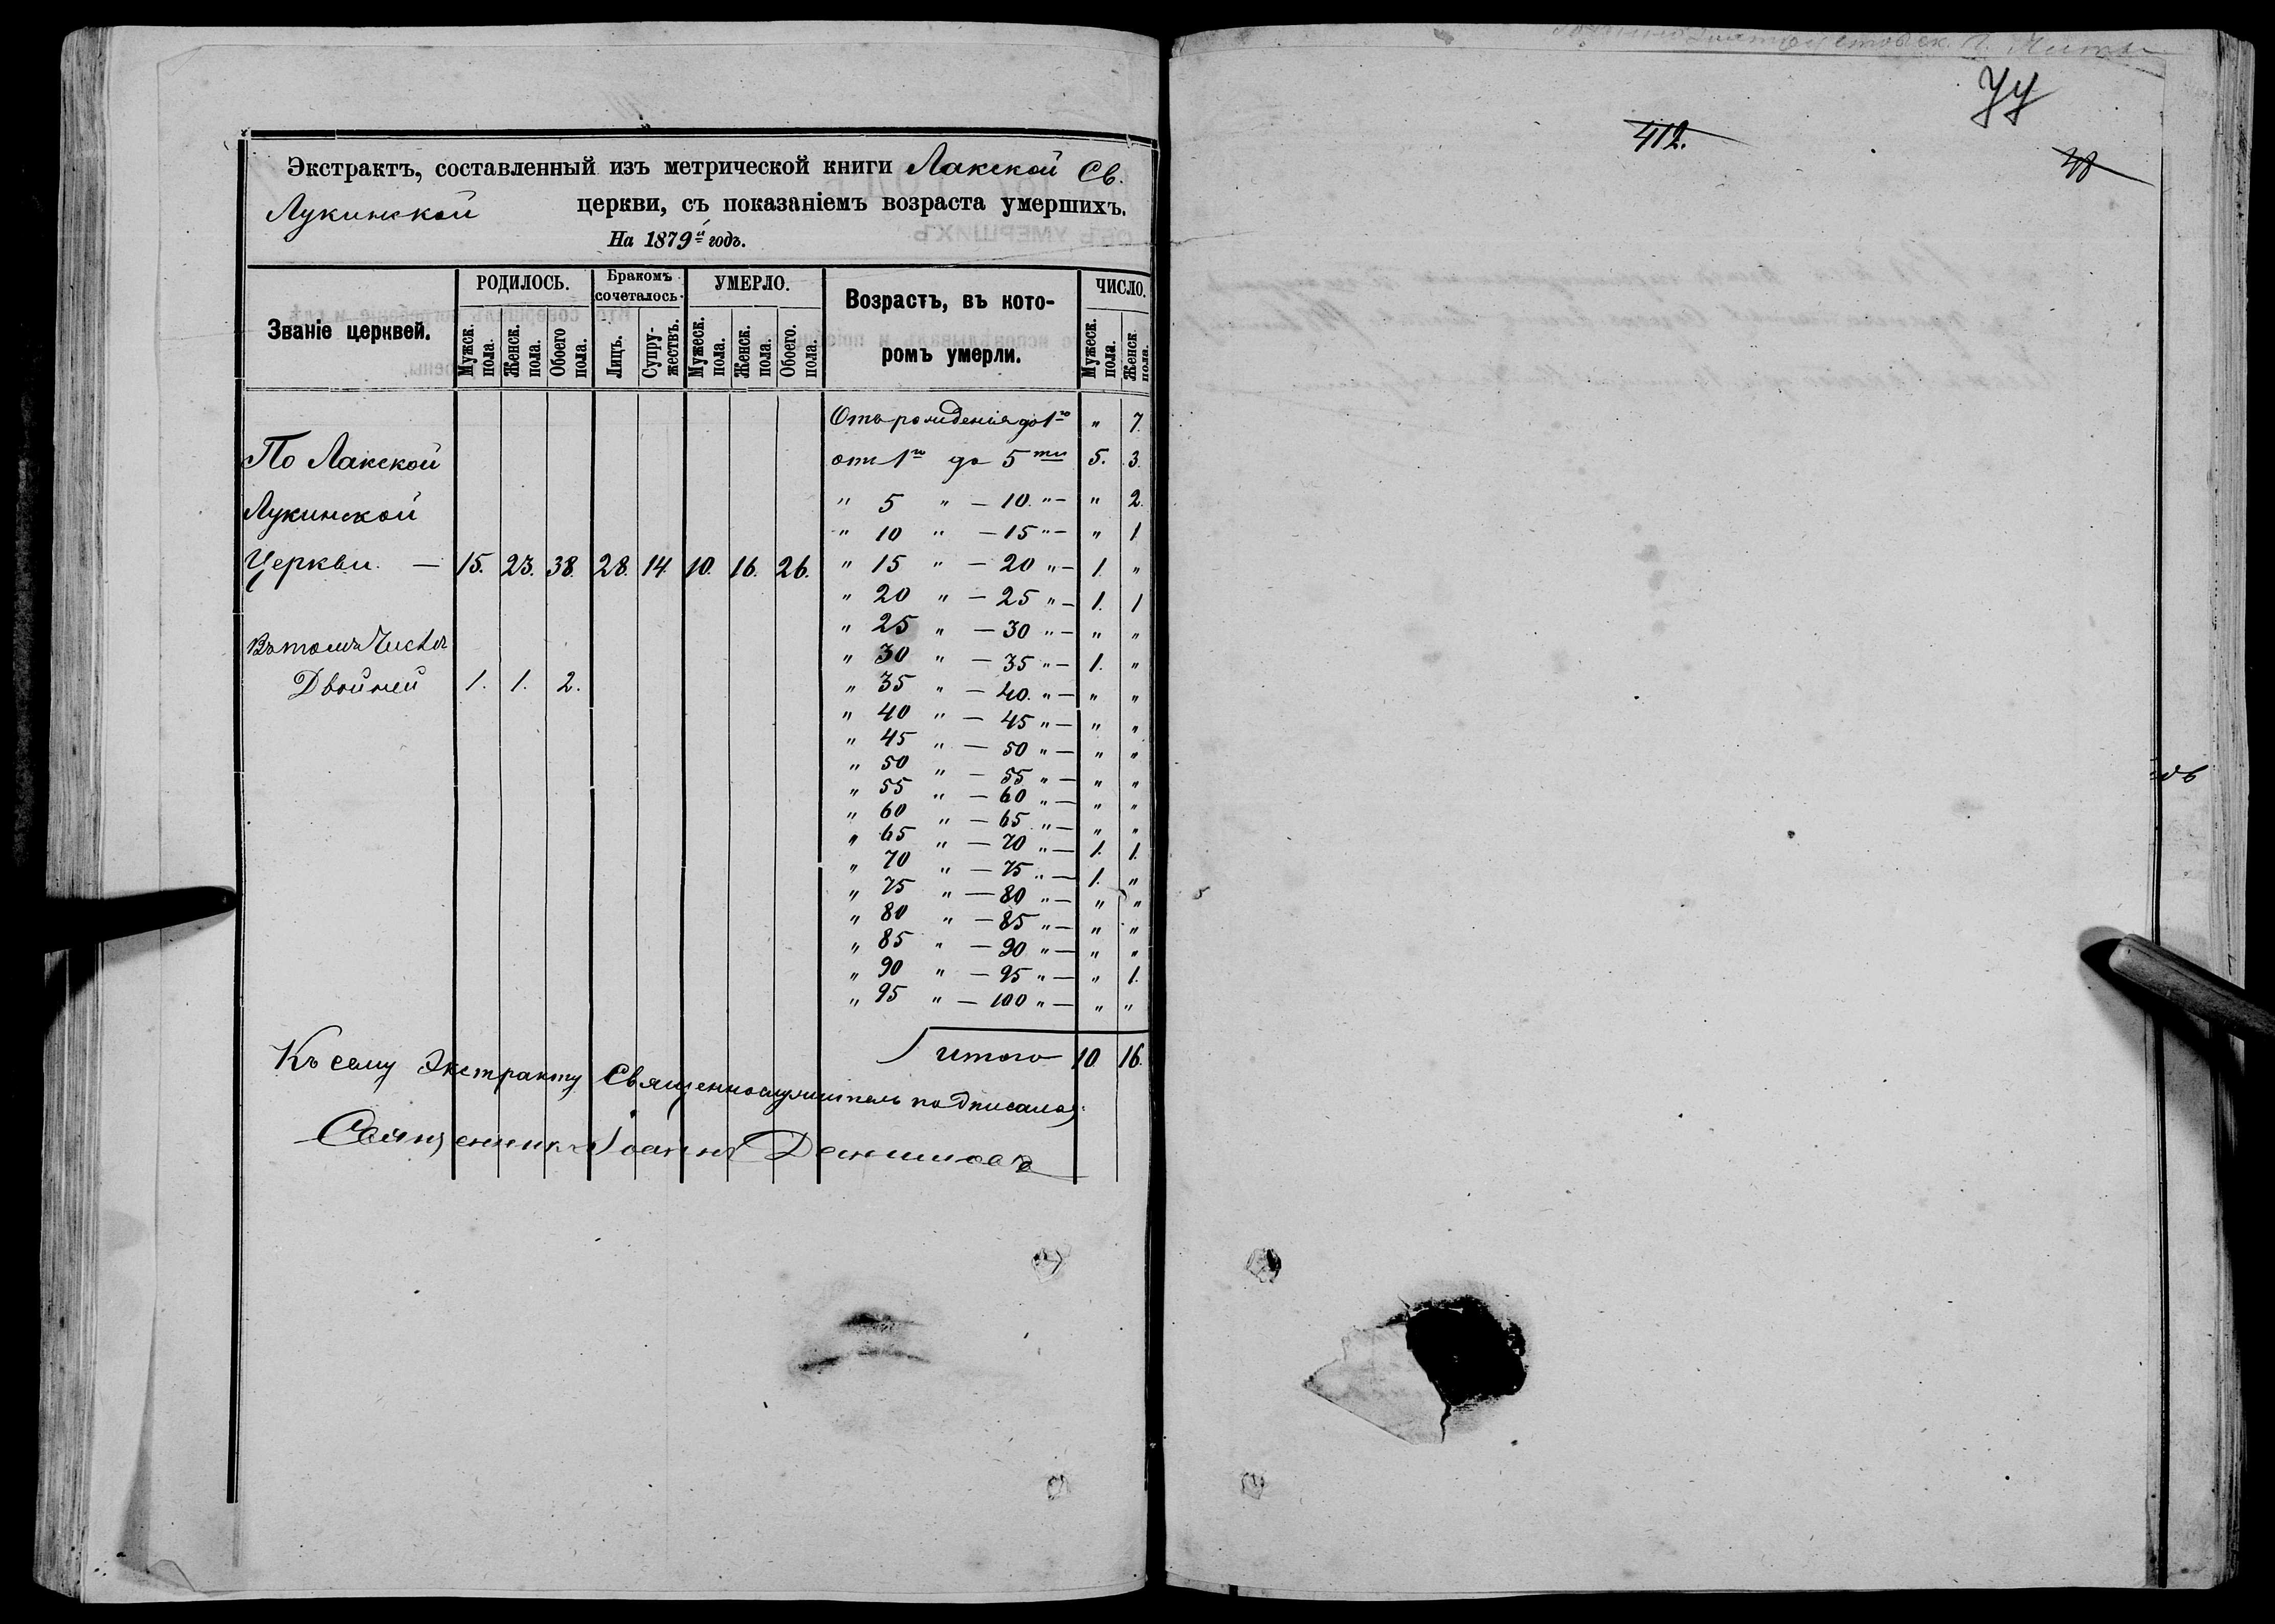 Экстрактъ, составленный изъ метрической книги Лакской Св.
Лукинской церкви, съ показаніемъ возраста умершихъ.
На 1879й годъ.
Званіе церквей. РОДИЛОСЬ. Бракомъ сочеталось. УМЕРЛО. Возрастъ, въ кото-ромъ умерли. ЧИСЛО.
Мужск. пола. Женск. пола. Обоего пола. Лицъ. Супру-жествъ. Мужеск. пола. Женск. пола. Обоего. пола. Мужеск. пола. Женск. пола.
Отъ рожденія до 1го " 7.
По Лакской
отъ 1го до 5ти 5. 3.
Лукинской
" 5 " — 10. " — " 2.
" 10 " — 15 " — " 1
Церкви. — 15. 23. 38. 28. 14. 10. 16. 26.
" 15 " — 20 " — 1. "
" 20 " — 25 " — 1. 1
Въ томъ Числѣ
" 25 " — 30 " — " "
" 30 " — 35 " — 1. "
Двойней 1. 1. 2.
" 35 " — 40. " — " "
" 40 " — 45 " — " "
" 45 " — 50 " — " "
" 50 " — 55 " — " "
" 55 " — 60 " — " "
" 60 " — 65 " — " "
" 65 " — 70 " — 1. 1.
" 70 " — 75 " — 1. "
" 75 " — 80 " — " "
" 80 " — 85 " — " "
" 85 " — 90 " — " "
" 90 " — 95 " — " 1.
" 95 " — 100 " — " "
Итого 10 16.
Къ сему Экстракту Священнослужитель подписался:
Священникъ Іоаннъ
412.